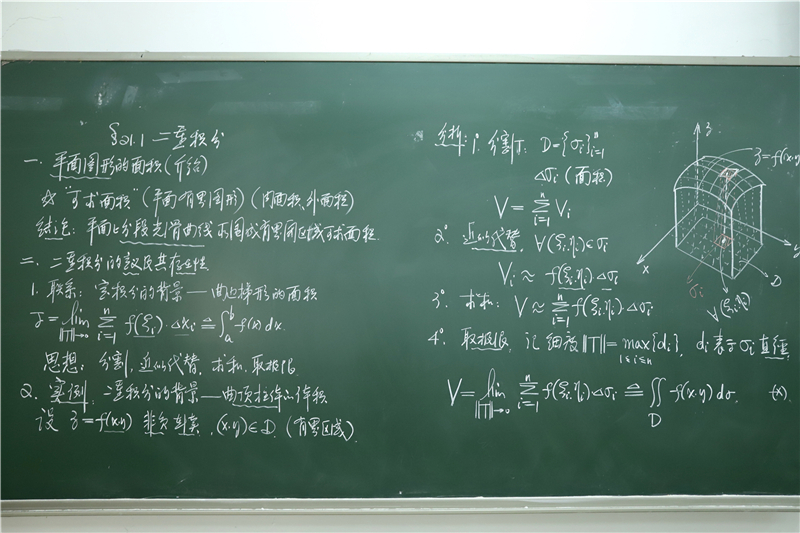 §21.1 二重积分
一. 平面图形的面积(介绍)
☆ "可求面积"(平面有界图形)(内面积、外面积)
结论: 平面上分段光滑曲线所围成有界闭区域可求面积.
二. 二重积分的定义及其存在性
1. 联系: 定积分的背景——曲边梯形的面积
J = lim_{‖T‖→0} Σ_{i=1}^{n} f(ξi)·Δxi ≜ ∫_a^b f(x)dx.
思想: 分割, 近似代替, 求和, 取极限.
2. 实例, 二重积分的背景——曲顶柱体的体积
设 z=f(x·y) 非负连续, (x·y)∈D. (有界区域).
分析: 1°. 分割T: D={σi}_{i=1}^{n}
Δσi (面积)
V = Σ_{i=1}^{n} Vi
2° 近似代替, ∀(ξi,ηi)∈σi
Vi ≈ f(ξi,ηi)·Δσi
3° 求和: V ≈ Σ_{i=1}^{n} f(ξi,ηi)·Δσi
4° 取极限, 记 细度‖T‖= max_{1≤i≤n}{di}, di表示σi直径,
V = lim_{‖T‖→0} Σ_{i=1}^{n} f(ξi,ηi)·Δσi ≜ ∬_D f(x·y)dσ.
z
z=f(x·y)
y
x
σi
D
∀(ξi,ηi)